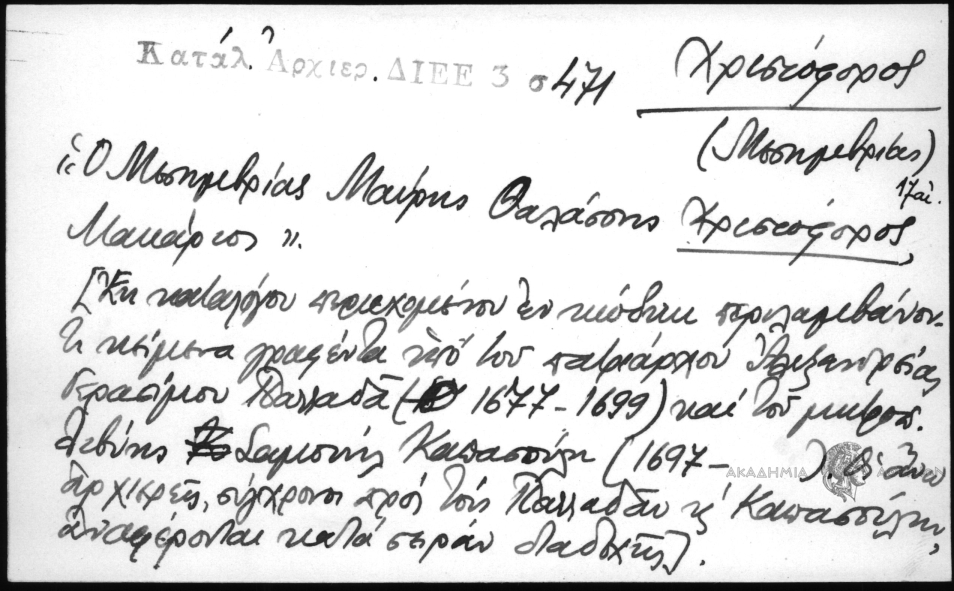 Κατάλ. Ἀρχιερ. ΔΙΕΕ 3 σ 471
Χριστόφορος
(Μεσημβρίας)
17 αἰ.
«Ὁ Μεσημβρίας Μαύρης Θαλάσσης Χριστόφορος
Μακάριος».
[Ἐκ καταλόγου περιεχομένου ἐν κώδικι περιλαμβάνον-
τι κείμενα γραφέντα ὑπό τοῦ πατριάρχου Ἀλεξανδρείας
Γερασίμου Παλλαδᾶ ( 1677-1699) καί τοῦ μητροπ.
Λιβύης Σαμουήλ Καπασούλη (1697- ). Οἱ ἄνω
ἀρχιερεῖς, σύγχρονοι πρός τούς Παλλαδᾶν κ Καπασούλην,
ἀναφέρονται κατά σειράν διαδοχῆς].
ΑΚΑΔΗΜΙΑ